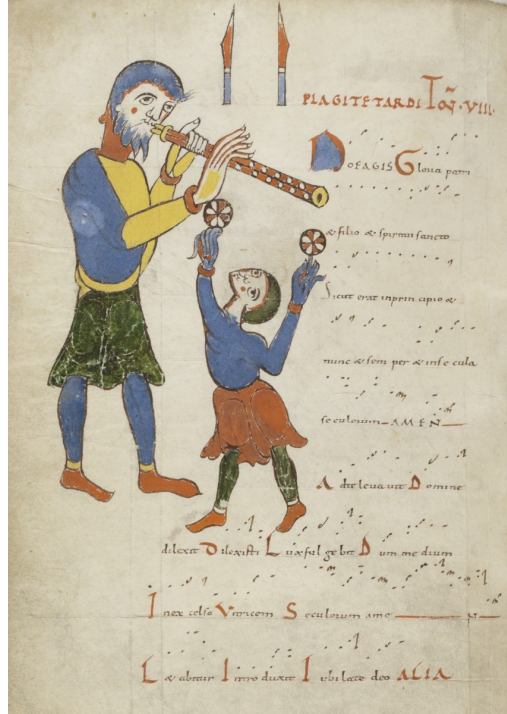 PLAGI TETARDI Toñ·VIII·
NOEAGIS Gloria patri
& filio & spiritui sancto
Sicut erat in principio &
nunc & sem per & inse cula
seculorum AMEN
Ad te levavit Domine
dilexit Dilexisti Lux ful ge bit Dum me dium
In ex celso Seculorum amo
Introduxit Iubilate deo ALIA